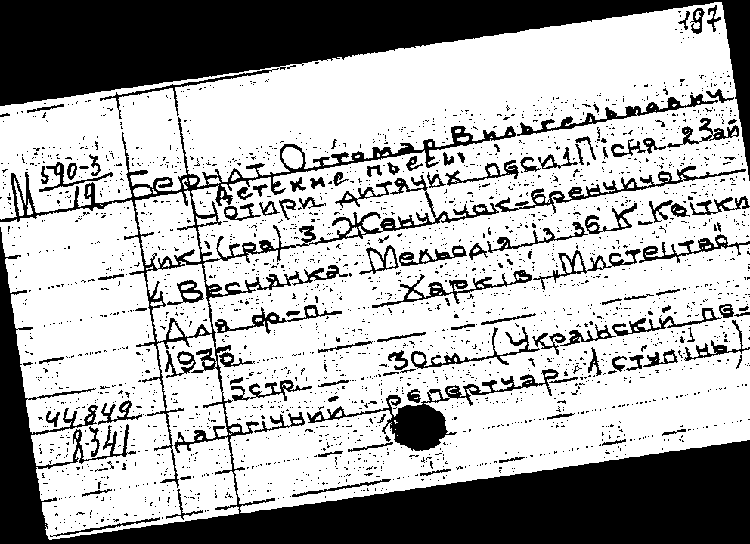 197
М 590-3
19
Бернат, Оттомар Вильгельмович
Детские пьесы
Чотири дитячих песи 1 Пісня 2 Зай
чик-(гра) 3. Женчичок-бренчичок.
4 Веснянка. Мелодія із зб. К. Квітки
Для ф.-п. Харків „Мистецтво"
1936.
5 стр. 30 см. (Український пе-
дагогічний репертуар. 1 ступінь)
44849
8341